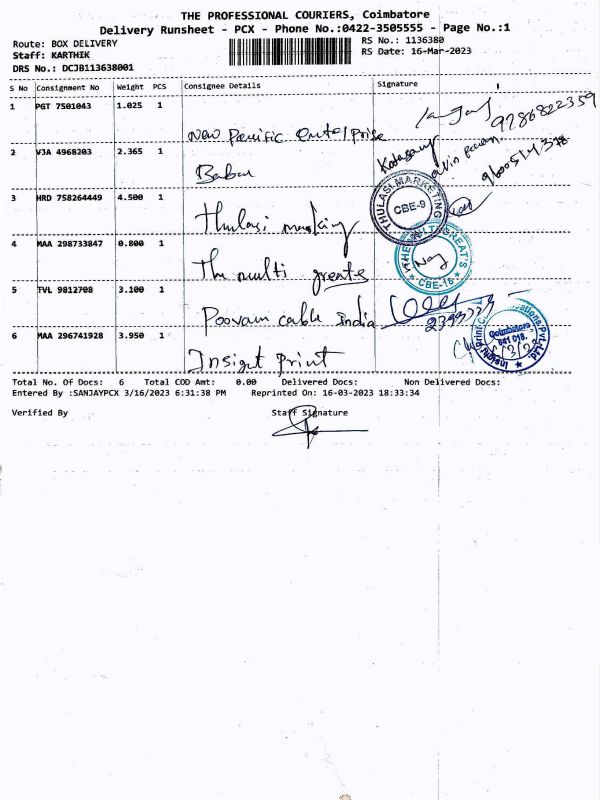 THE PROFESSIONAL COURIERS, Coimbatore
Delivery Runsheet - PCX - Phone No.:0422-3505555 - Page No.:1
Route: BOX DELIVERY
RS No.: 1136380
Staff: KARTHIK
RS Date: 16-Mar-2023
DRS No.: DCJB113638001
S No Consignment No Weight PCS Consignee Details Signature
1 PGT 7501043 1.025 1 New Pacific enterprise 9786822359
2 VJA 4968203 2.365 1 Babu
3 HRD 758264449 4.500 1 Thulasi
THULASI MARKETING CBE-9
4 MAA 298733847 0.800 1 The multi greats
CBE-18
5 TVL 9812708 3.100 1 Poovam cable India
6 MAA 296741928 3.950 1 Insight Print
Coimbatore 641 018.
Total No. Of Docs: 6 Total COD Amt: 0.00 Delivered Docs: Non Delivered Docs:
Entered By :SANJAYPCX 3/16/2023 6:31:38 PM Reprinted On: 16-03-2023 18:33:34
Verified By Staff Signature